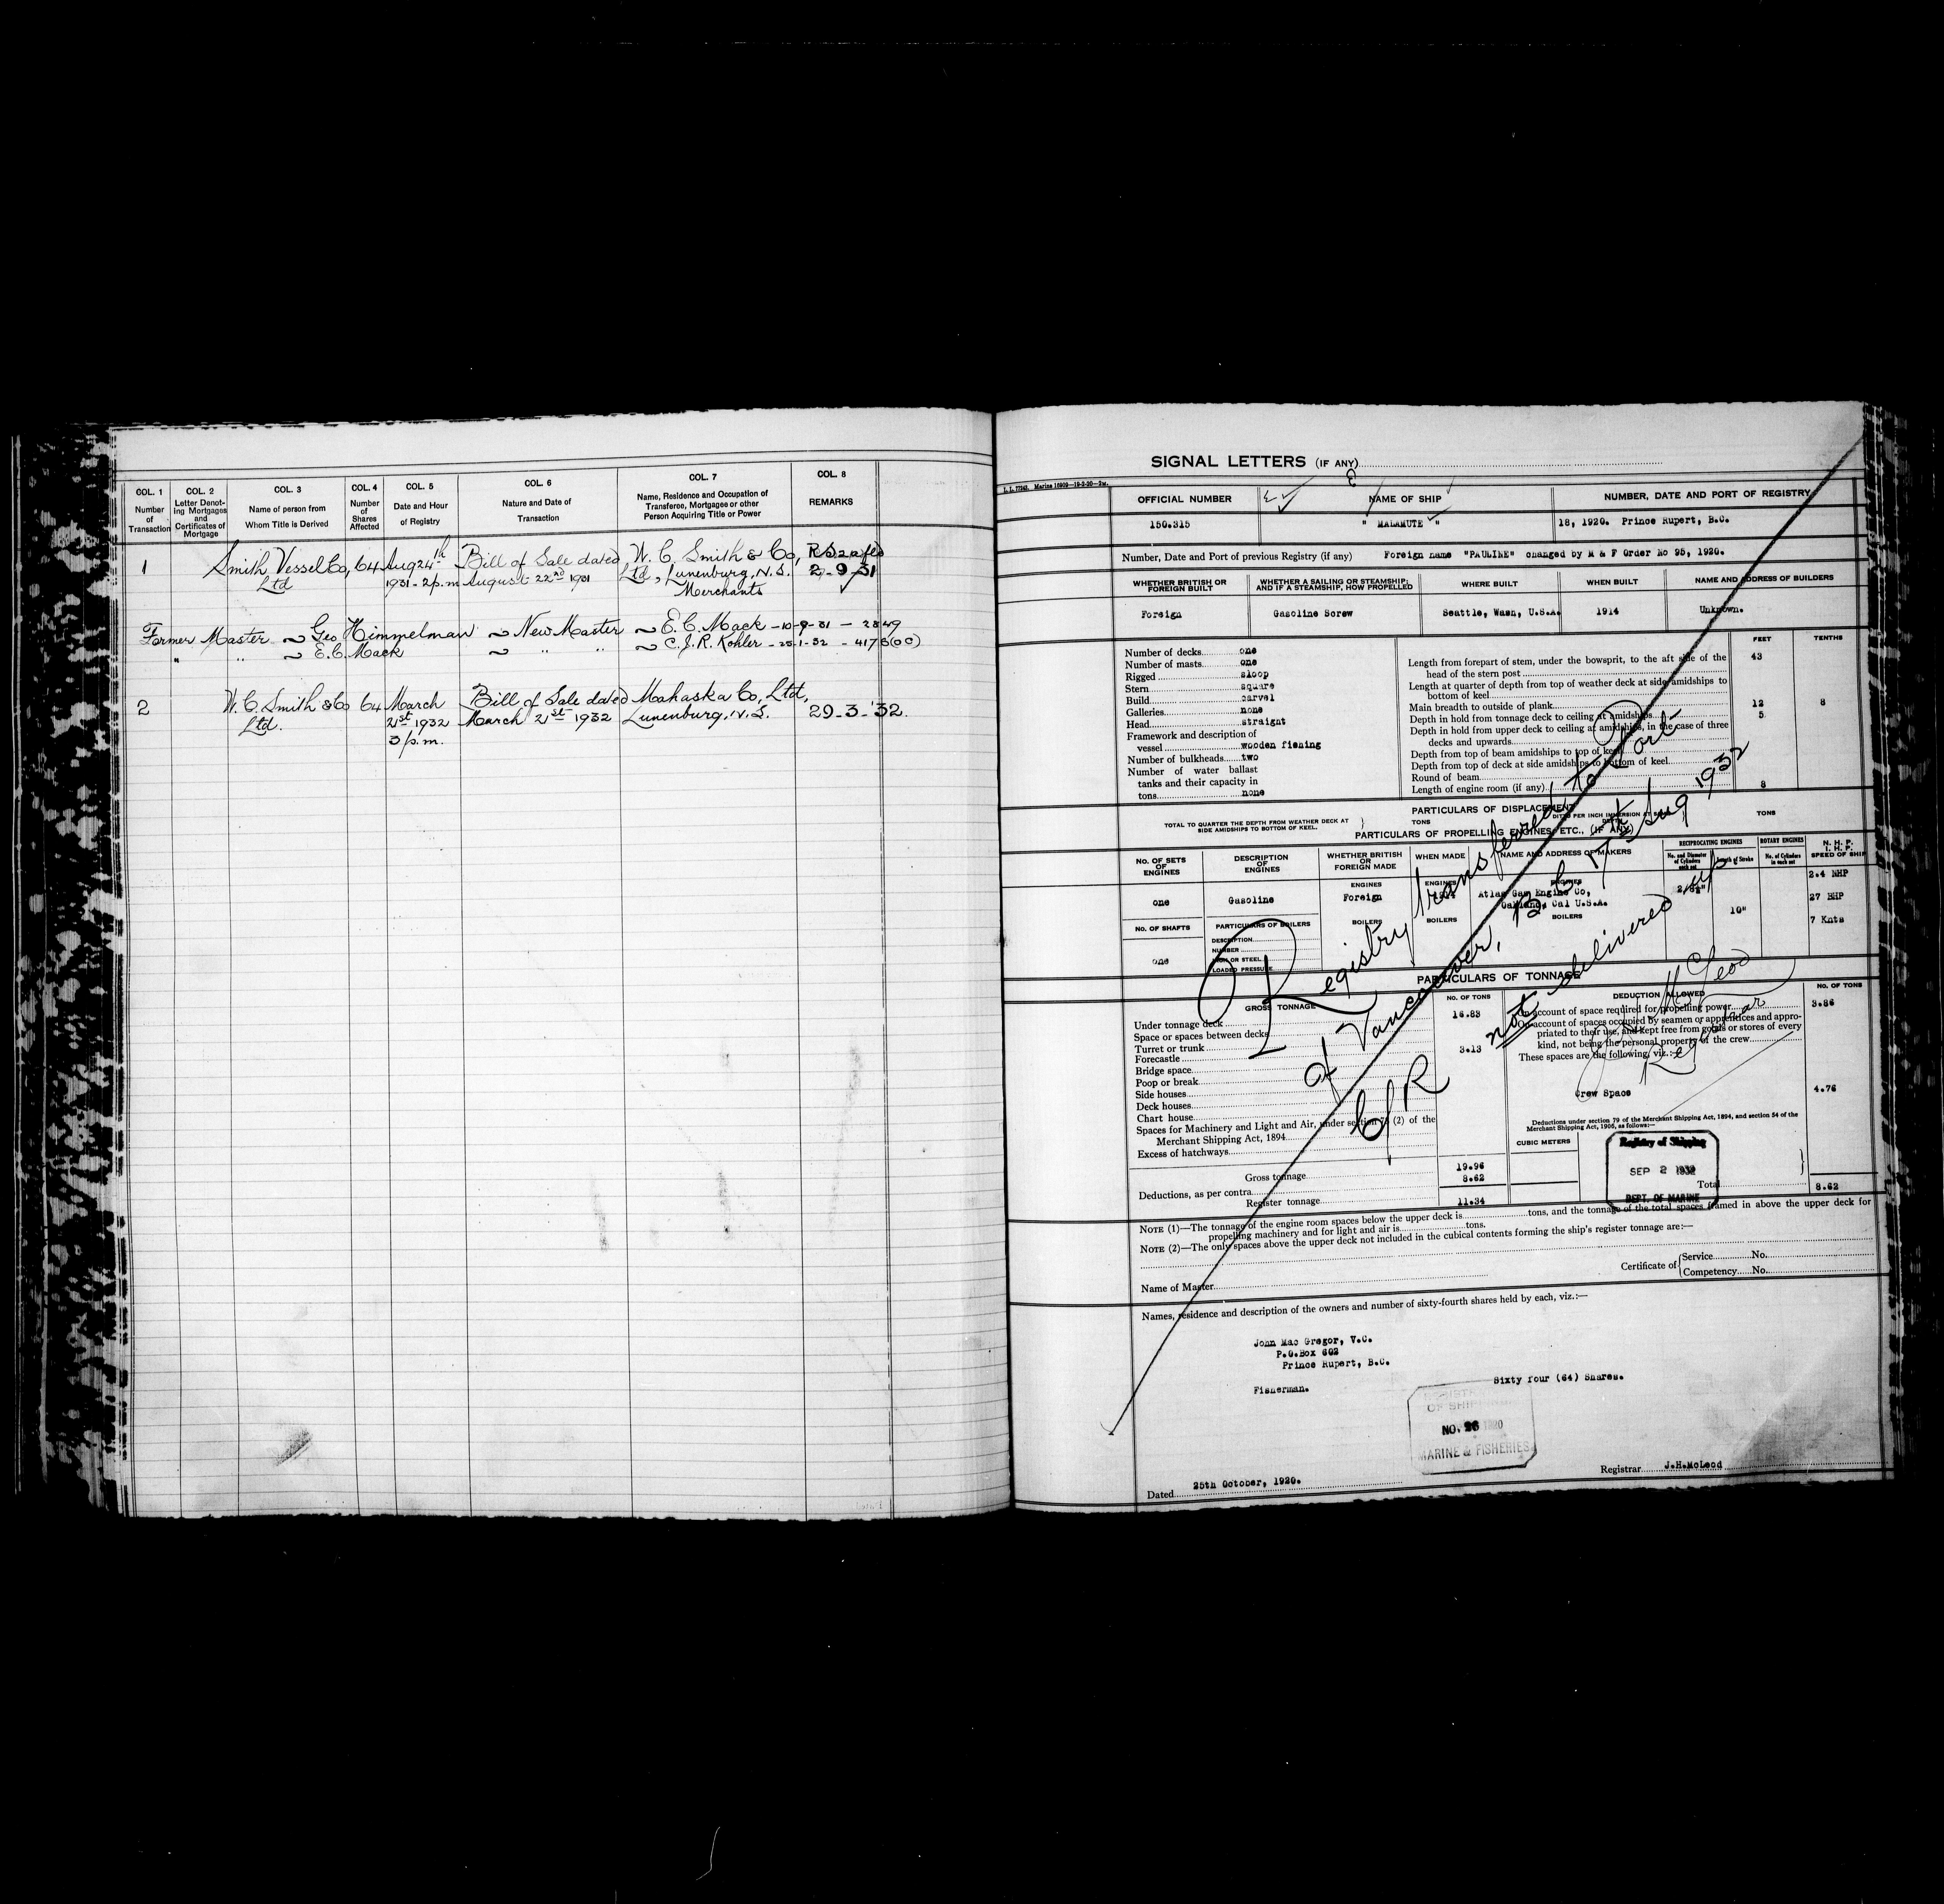 COL. 1
Number
of
Transaction
COL. 2
Letter Denot-
ing Mortgages
and
Certificates of
Mortgage
COL. 3
Name of person from
Whom Title is Derived
COL. 4
Number
of
Shares
Affected
COL. 5
Date and Hour
of Registry
COL. 6
Nature and Date of
Transaction
COL. 7
Name, Residence and Occupation of
Transferee, Mortgagee or other
Person Acquiring Title or Power
COL. 8
REMARKS
1 Smith Vessel Co, 64 Aug 24th Bill of Sale dated W. C. Smith & Co,
Ltd 1931 - 2 p.m August 22nd 1931 Ltd, Lunenburg, N.S. 2-9-31
Merchants
Former Master ~ Geo Himmelman ~ New Master ~ E.C. Mack - 10-9-31 - 2849
" " ~ E.C. Mack ~ " " ~ C.J.R. Kohler - 25-1-32 - 4178(OC)
2 W. C. Smith & Co 64 March Bill of Sale dated Mahaska Co, Ltd,
Ltd. 21st 1932 March 21st 1932 Lunenburg, N.S. 29-3-'32.
3 p.m.
SIGNAL LETTERS (IF ANY)
L. L. 77243. Marine 16909—19-3-20—2M.
OFFICIAL NUMBER NAME OF SHIP NUMBER, DATE AND PORT OF REGISTRY
150.315 " MALAMUTE " 18, 1920. Prince Rupert, B.C.
Number, Date and Port of previous Registry (if any) Foreign name "PAULINE" changed by M & F Order No 95, 1920.
WHETHER BRITISH OR
FOREIGN BUILT
WHETHER A SAILING OR STEAMSHIP;
AND IF A STEAMSHIP, HOW PROPELLED
WHERE BUILT WHEN BUILT NAME AND ADDRESS OF BUILDERS
Foreign Gasoline Screw Seattle, Wash, U.S.A. 1914 Unknown.
FEET TENTHS
Number of decks one
Number of masts one
Rigged sloop
Stern square
Build carvel
Galleries none
Head straight
Framework and description of
vessel wooden fishing
Number of bulkheads two
Number of water ballast
tanks and their capacity in
tons none
Length from forepart of stem, under the bowsprit, to the aft side of the
head of the stern post 43
Length at quarter of depth from top of weather deck at side amidships to
bottom of keel
Main breadth to outside of plank 12 8
Depth in hold from tonnage deck to ceiling at amidships 5
Depth in hold from upper deck to ceiling at amidships, in the case of three
decks and upwards
Depth from top of beam amidships to top of keel
Depth from top of deck at side amidships to bottom of keel
Round of beam
Length of engine room (if any) 8
PARTICULARS OF DISPLACEMENT
TOTAL TO QUARTER THE DEPTH FROM WEATHER DECK AT
SIDE AMIDSHIPS TO BOTTOM OF KEEL.
TONS
TONS
PARTICULARS OF PROPELLING ENGINES, ETC., (IF ANY)
NO. OF SETS
OF
ENGINES
DESCRIPTION
OF
ENGINES
WHETHER BRITISH
OR
FOREIGN MADE
WHEN MADE
NAME AND ADDRESS OF MAKERS
RECIPROCATING ENGINES
No. and Diameter
of Cylinders
in each set
Length of Stroke
ROTARY ENGINES
No. of Cylinders
in each set
N. H. P.
I. H. P.
SPEED OF SHIP
ENGINES ENGINES ENGINES
one Gasoline Foreign Atlas Gas Engine Co,
Oakland, Cal U.S.A.
10"
2.4 NHP
27 BHP
7 Knts
NO. OF SHAFTS
one
PARTICULARS OF BOILERS
DESCRIPTION
NUMBER
IRON OR STEEL
LOADED PRESSURE
BOILERS BOILERS BOILERS
Registry transferred to Port
of Vancouver, B.C. 17th Aug 1932
C/R not delivered up
McLeod
Registrar
PARTICULARS OF TONNAGE
GROSS TONNAGE NO. OF TONS
Under tonnage deck 16.83
Space or spaces between decks
Turret or trunk 3.13
Forecastle
Bridge space
Poop or break
Side houses
Deck houses
Chart house
Spaces for Machinery and Light and Air, under section 78 (2) of the
Merchant Shipping Act, 1894
Excess of hatchways
Gross tonnage 19.96
Deductions, as per contra 8.62
Register tonnage 11.34
DEDUCTION ALLOWED NO. OF TONS
On account of space required for propelling power 3.86
On account of spaces occupied by seamen or apprentices and appro-
priated to their use, and kept free from goods or stores of every
kind, not being the personal property of the crew
These spaces are the following, viz.:—
Crew Space 4.76
Deductions under section 79 of the Merchant Shipping Act, 1894, and section 54 of the
Merchant Shipping Act, 1906, as follows:—
CUBIC METERS
Registry of Shipping
SEP 2 1932
DEPT. OF MARINE
Total 8.62
NOTE (1)—The tonnage of the engine room spaces below the upper deck is tons, and the tonnage of the total spaces framed in above the upper deck for
propelling machinery and for light and air is tons.
NOTE (2)—The only spaces above the upper deck not included in the cubical contents forming the ship's register tonnage are:—
Name of Master
Certificate of Service No.
Competency No.
Names, residence and description of the owners and number of sixty-fourth shares held by each, viz.:—
John Mac Gregor, V.C.
P.O.Box 602
Prince Rupert, B.C.
Fisherman.
Sixty four (64) Shares.
OF SHIPPING
NO. 26 1920
MARINE & FISHERIES
Dated 25th October, 1920.
Registrar J.H.McLeod